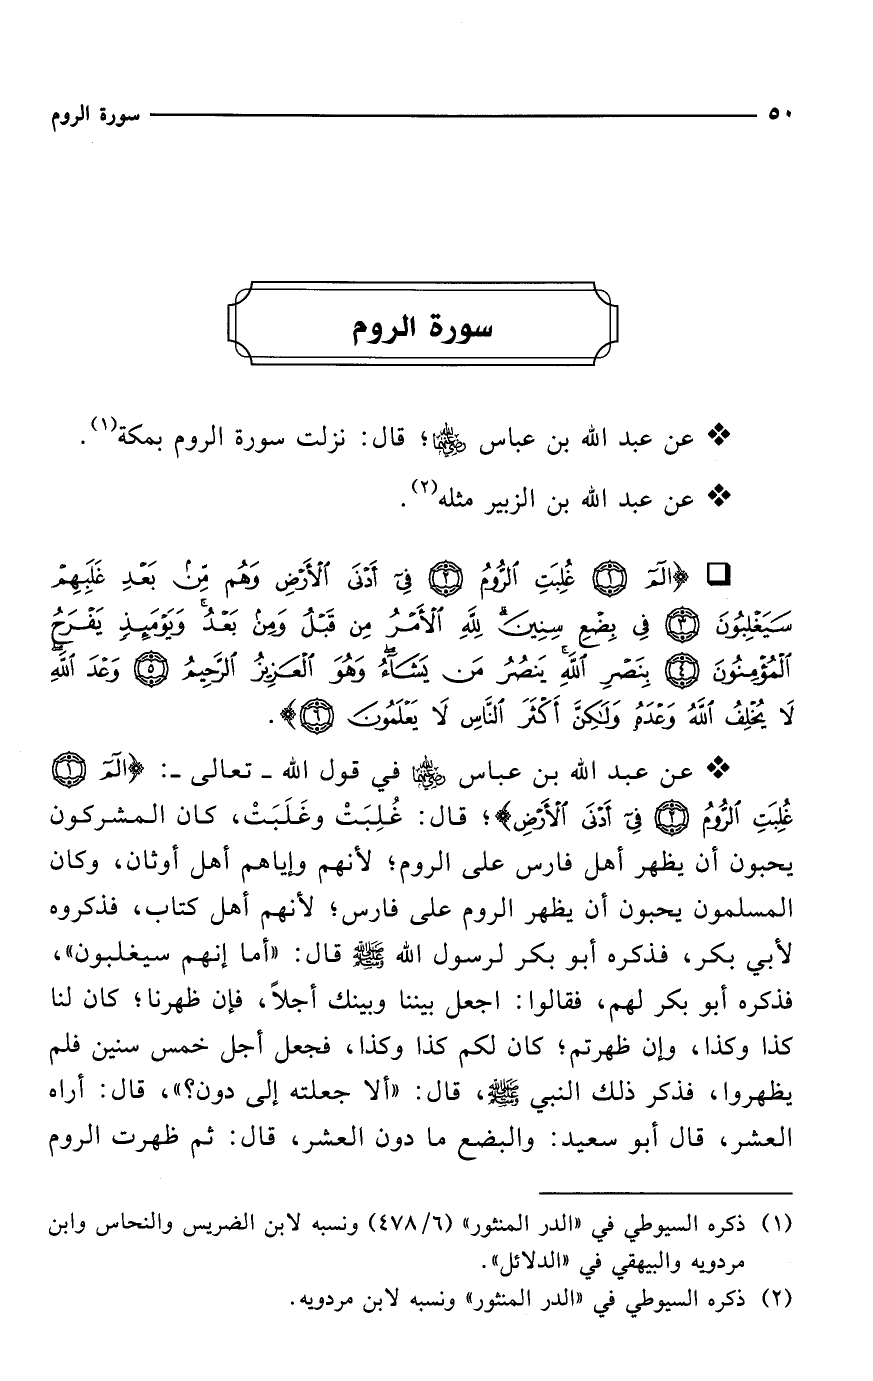 ٥٠ سورة الروم
سورة الروم
❖ عن عبد الله بن عباس رضي الله عنهما؛ قال: نزلت سورة الروم بمكة(١).
❖ عن عبد الله بن الزبير مثله(٢).
❑ ﴿الٓمٓ ١ غُلِبَتِ ٱلرُّومُ ٢ فِىٓ أَدْنَى ٱلْأَرْضِ وَهُم مِّنۢ بَعْدِ غَلَبِهِمْ
سَيَغْلِبُونَ ٣ فِى بِضْعِ سِنِينَ ۗ لِلَّهِ ٱلْأَمْرُ مِن قَبْلُ وَمِنۢ بَعْدُ ۚ وَيَوْمَئِذٍ يَفْرَحُ
ٱلْمُؤْمِنُونَ ٤ بِنَصْرِ ٱللَّهِ ۚ يَنصُرُ مَن يَشَآءُ ۖ وَهُوَ ٱلْعَزِيزُ ٱلرَّحِيمُ ٥ وَعْدَ ٱللَّهِ ۖ
لَا يُخْلِفُ ٱللَّهُ وَعْدَهُۥ وَلَٰكِنَّ أَكْثَرَ ٱلنَّاسِ لَا يَعْلَمُونَ ٦﴾.
❖ عن عبد الله بن عباس رضي الله عنهما في قول الله ـ تعالى ـ: ﴿الٓمٓ ١
غُلِبَتِ ٱلرُّومُ ٢ فِىٓ أَدْنَى ٱلْأَرْضِ﴾؛ قال: غُلِبَتْ وغَلَبَتْ، كان المشركون
يحبون أن يظهر أهل فارس على الروم؛ لأنهم وإياهم أهل أوثان، وكان
المسلمون يحبون أن يظهر الروم على فارس؛ لأنهم أهل كتاب، فذكروه
لأبي بكر، فذكره أبو بكر لرسول الله ﷺ قال: «أما إنهم سيغلبون»،
فذكره أبو بكر لهم، فقالوا: اجعل بيننا وبينك أجلاً، فإن ظهرنا؛ كان لنا
كذا وكذا، وإن ظهرتم؛ كان لكم كذا وكذا، فجعل أجل خمس سنين فلم
يظهروا، فذكر ذلك النبي ﷺ، قال: «ألا جعلته إلى دون؟»، قال: أراه
العشر، قال أبو سعيد: والبضع ما دون العشر، قال: ثم ظهرت الروم
(١) ذكره السيوطي في «الدر المنثور» (٤٧٨/٦) ونسبه لابن الضريس والنحاس وابن
مردويه والبيهقي في «الدلائل».
(٢) ذكره السيوطي في «الدر المنثور» ونسبه لابن مردويه.